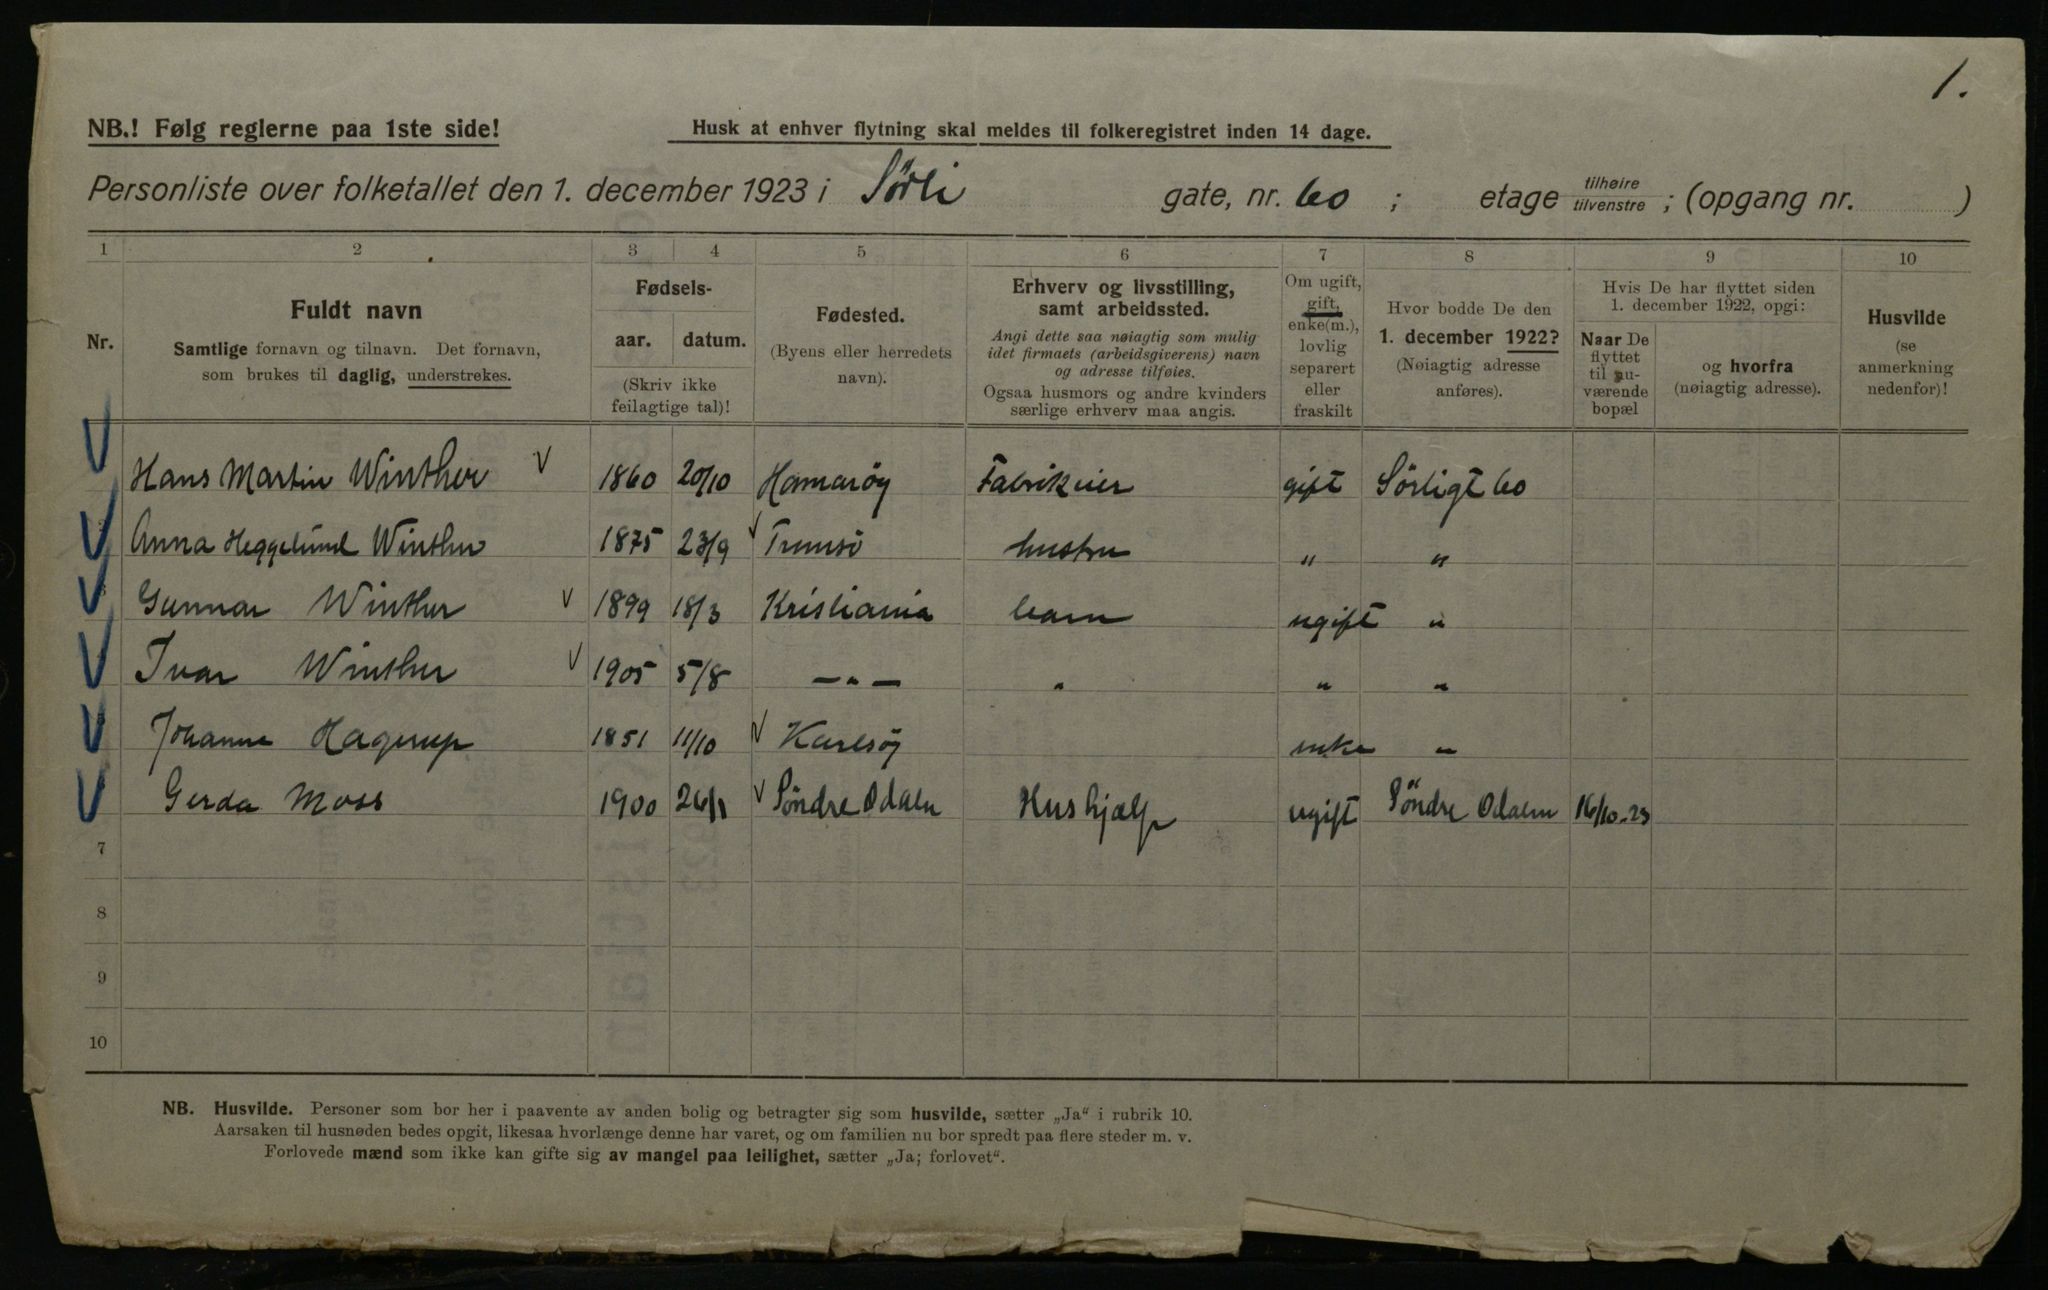 1.
NB.! Følg reglerne paa 1ste side!
Husk at enhver flytning skal meldes til folkeregistret inden 14 dage.
Personliste over folketallet den 1. december 1923 i Sørli gate, nr. 60 ; etage tilhøire tilvenstre ; (opgang nr. )
1 2 3 4 5 6 7 8 9 10
Nr.
Fuldt navn
Samtlige fornavn og tilnavn. Det fornavn,
som brukes til daglig, understrekes.
Fødsels-
aar. datum.
(Skriv ikke
feilagtige tal)!
Fødested.
(Byens eller herredets
navn).
Erhverv og livsstilling,
samt arbeidssted.
Angi dette saa nøiagtig som mulig
idet firmaets (arbeidsgiverens) navn
og adresse tilføies.
Ogsaa husmors og andre kvinders
særlige erhverv maa angis.
Om ugift,
gift,
enke(m.),
lovlig
separert
eller
fraskilt
Hvor bodde De den
1. december 1922?
(Nøiagtig adresse
anføres).
Hvis De har flyttet siden
1. december 1922, opgi:
Naar De
flyttet
til nu-
værende
bopæl
og hvorfra
(nøiagtig adresse).
Husvilde
(se
anmerkning
nedenfor)!
Hans Martin Winther 1860 20/10 Hamarøy Fabrikeier gift Sørligt 60
Anna Heggelund Winther 1875 23/9 Tromsö hustru " "
Gunnar Winther 1899 18/3 Kristiania barn ugift "
Ivar Winther 1905 5/8 — " — " " "
Johanne Hagerup 1851 11/10 Karlsøy enke "
Gerda Moss 1900 26/1 Söndre Odalen Hushjælp ugift Söndre Odalen 16/10-23
7
8
9
10
NB. Husvilde. Personer som bor her i paavente av anden bolig og betragter sig som husvilde, sætter „Ja" i rubrik 10.
Aarsaken til husnøden bedes opgit, likesaa hvorlænge denne har varet, og om familien nu bor spredt paa flere steder m. v.
Forlovede mænd som ikke kan gifte sig av mangel paa leilighet, sætter „Ja; forlovet".